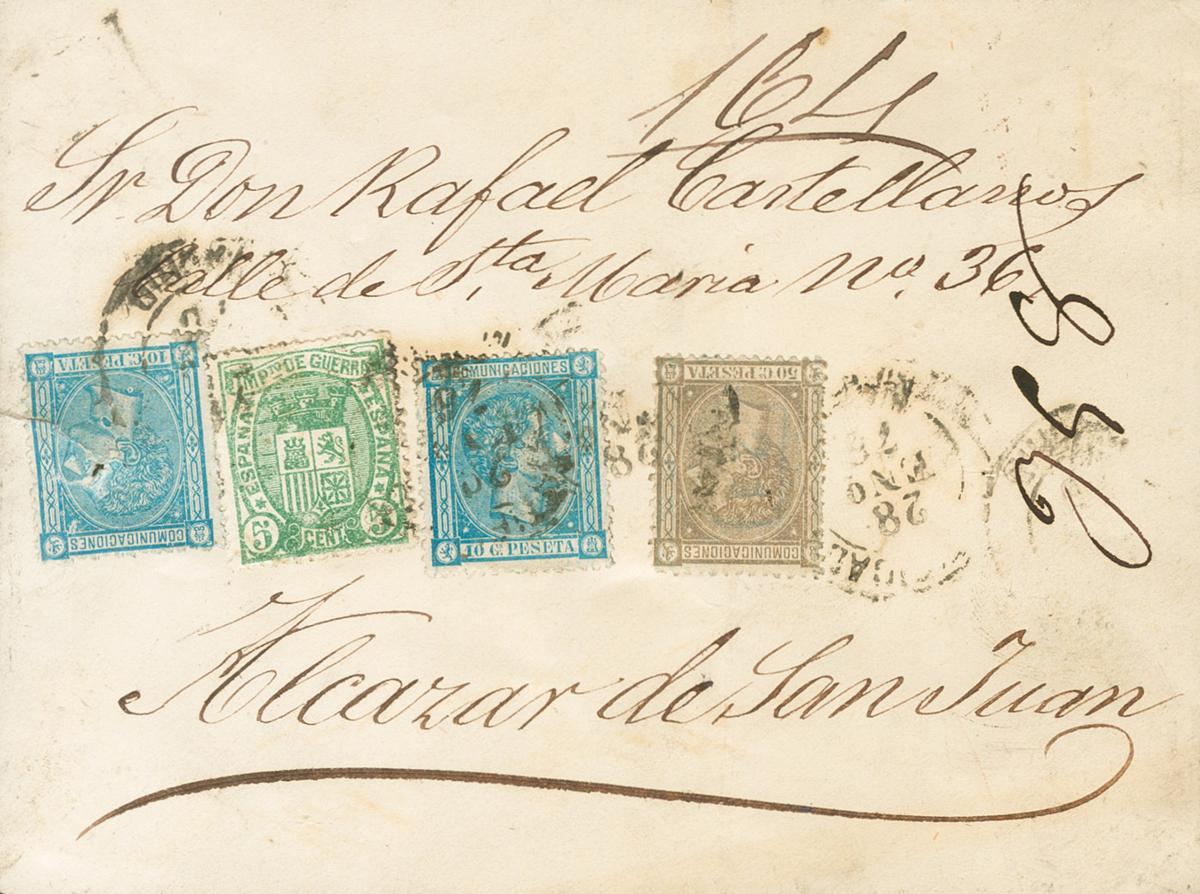 164
Sr. Don Rafael Castellanos
Calle de Sta. Maria No. 36
10 C. PESETA
COMUNICACIONES
IMPTO DE GUERRA
ESPAÑA
ESPAÑA
5 CENT. 5
COMUNICACIONES
10 C. PESETA
50 C. PESETA
COMUNICACIONES
28
ENO
76
Alcazar de San Juan